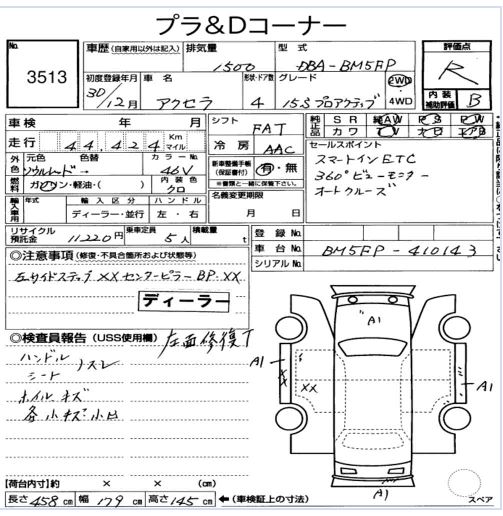 プラ&Dコーナー
No.
3513
車歴 (自家用以外は記入)
排気量
1500
型式
DBA-BM5FP
評価点
R
初度登録年月
30/12月
車名
アクセラ
形状・ドア数
4
グレード
15S プロアクティブ
2WD
4WD
内装
補助評価
B
車検 年 月
シフト
FAT
純正品
SR
AW
PS
PW
カワ
TV
ナビ
エアB
走行
44,424
Km
マイル
冷房
AAC
セールスポイント
スマートインETC
360°ビューモニター
オートクルーズ
外色
元色
色替
カラーNo.
ソウルレッド→
46V
新車整備手帳
(保証書付)
有・無
※書類と一緒に保管下さい。
燃料
ガソリン・軽油・( )
内装色
クロ
名義変更期限
月 日
輸入車用
年式
輸入区分
ハンドル
ディーラー・並行
左・右
リサイクル
預託金
11220円
乗車定員
5人
積載量
t
登録No.
車台No.
BM5FP-410143
シリアルNo.
◎注意事項 (修復・不具合箇所および状態等)
左サイドステップXX センターピラーBP・XX
ディーラー
◎検査員報告 (USS使用欄)
左面修復了
ハンドル
シート
スレ
ホイルキズ
各小キズ小凹
A1
A1
XX
XX
A1
A1
【荷台内寸】約 × × (cm)
長さ 458 cm 幅 179 cm 高さ 145 cm ←(車検証上の寸法)
スペア